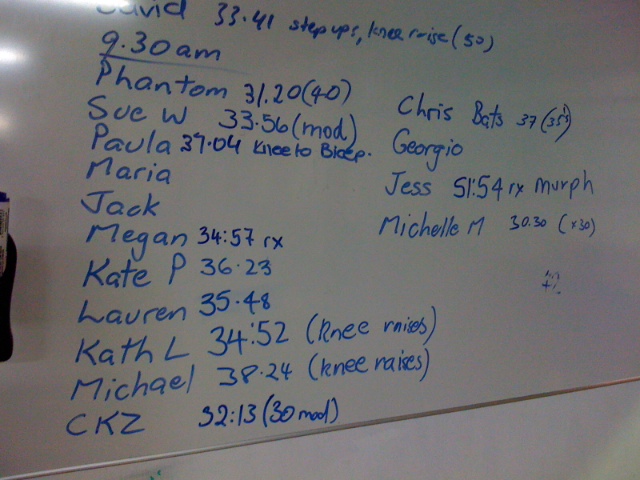 David 33.41 step ups, knee raise (50)
9.30am
Phantom 31.20 (40)
Sue W 33.56 (mod)
Paula 37.04 Knee to Bicep.
Maria
Jack
Megan 34:57 rx
Kate P 36.23
Lauren 35.48
Kath L 34:52 (Knee raises)
Michael 38.24 (knee raises)
CKZ 32:13 (30 mod)
Chris Bats 37
Georgio
Jess 51:54 rx murph
Michelle M 30.30 (x30)